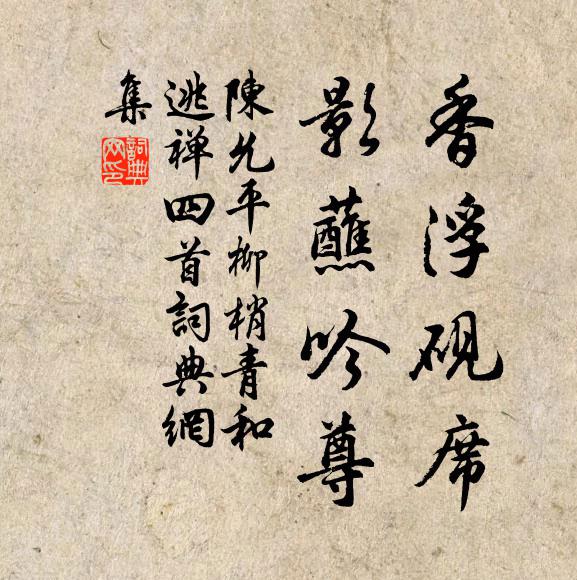 香浮硯席
影蘸吟尊
陳允平柳梢青和
逃禅四首詞典網
集
詞典網印